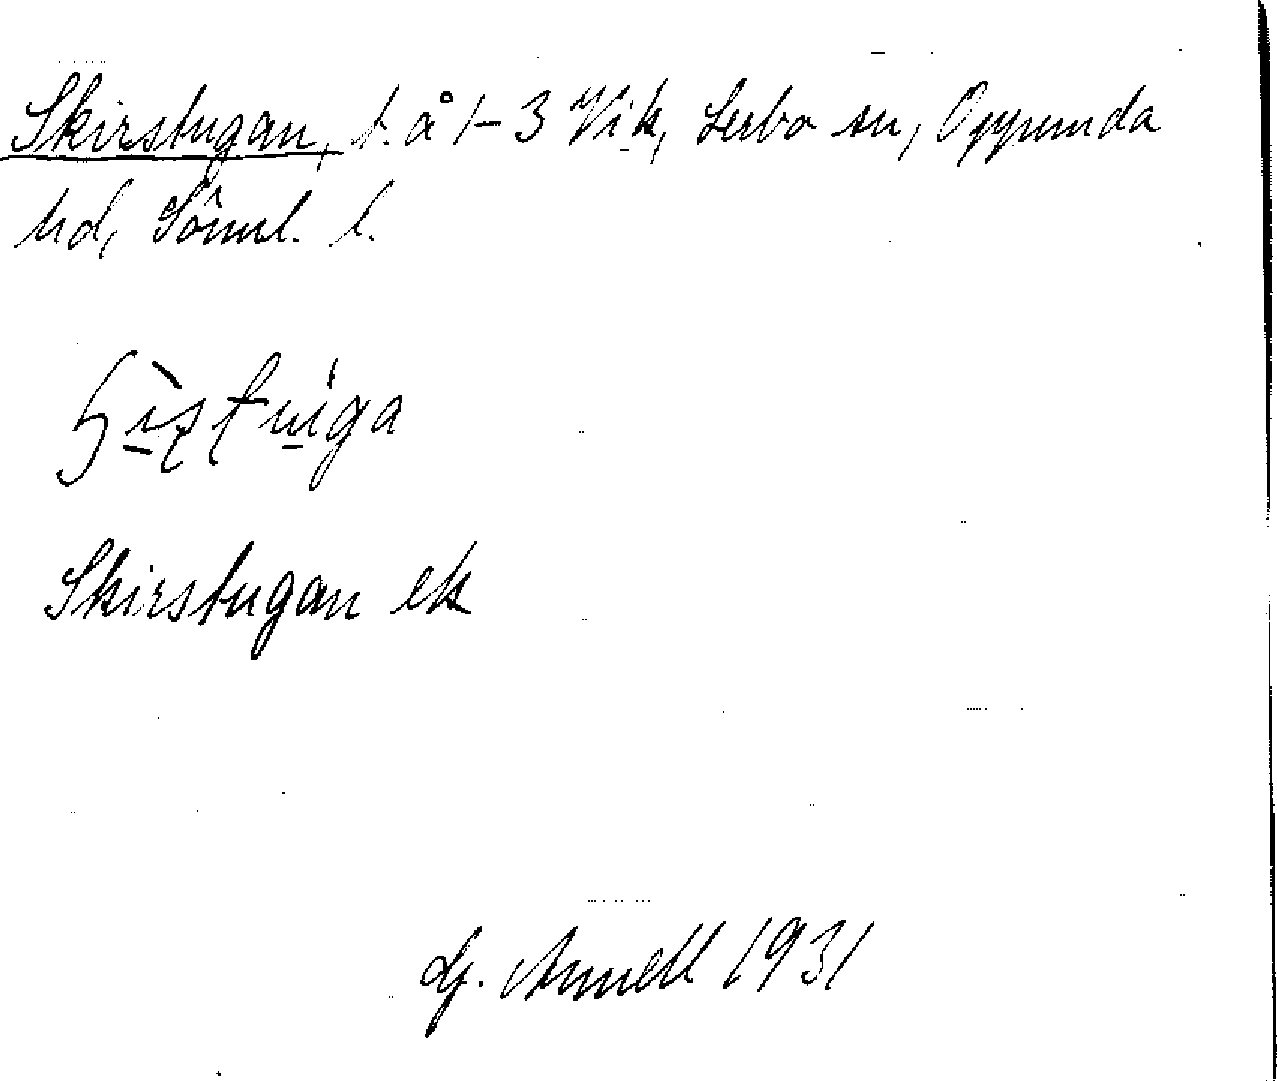 Skirstugan, t. å 1–3 Vik, Lerbo sn, Oppunda
hd, Sörml. l.
Skirstugan ek
Lj. Arnell 1931